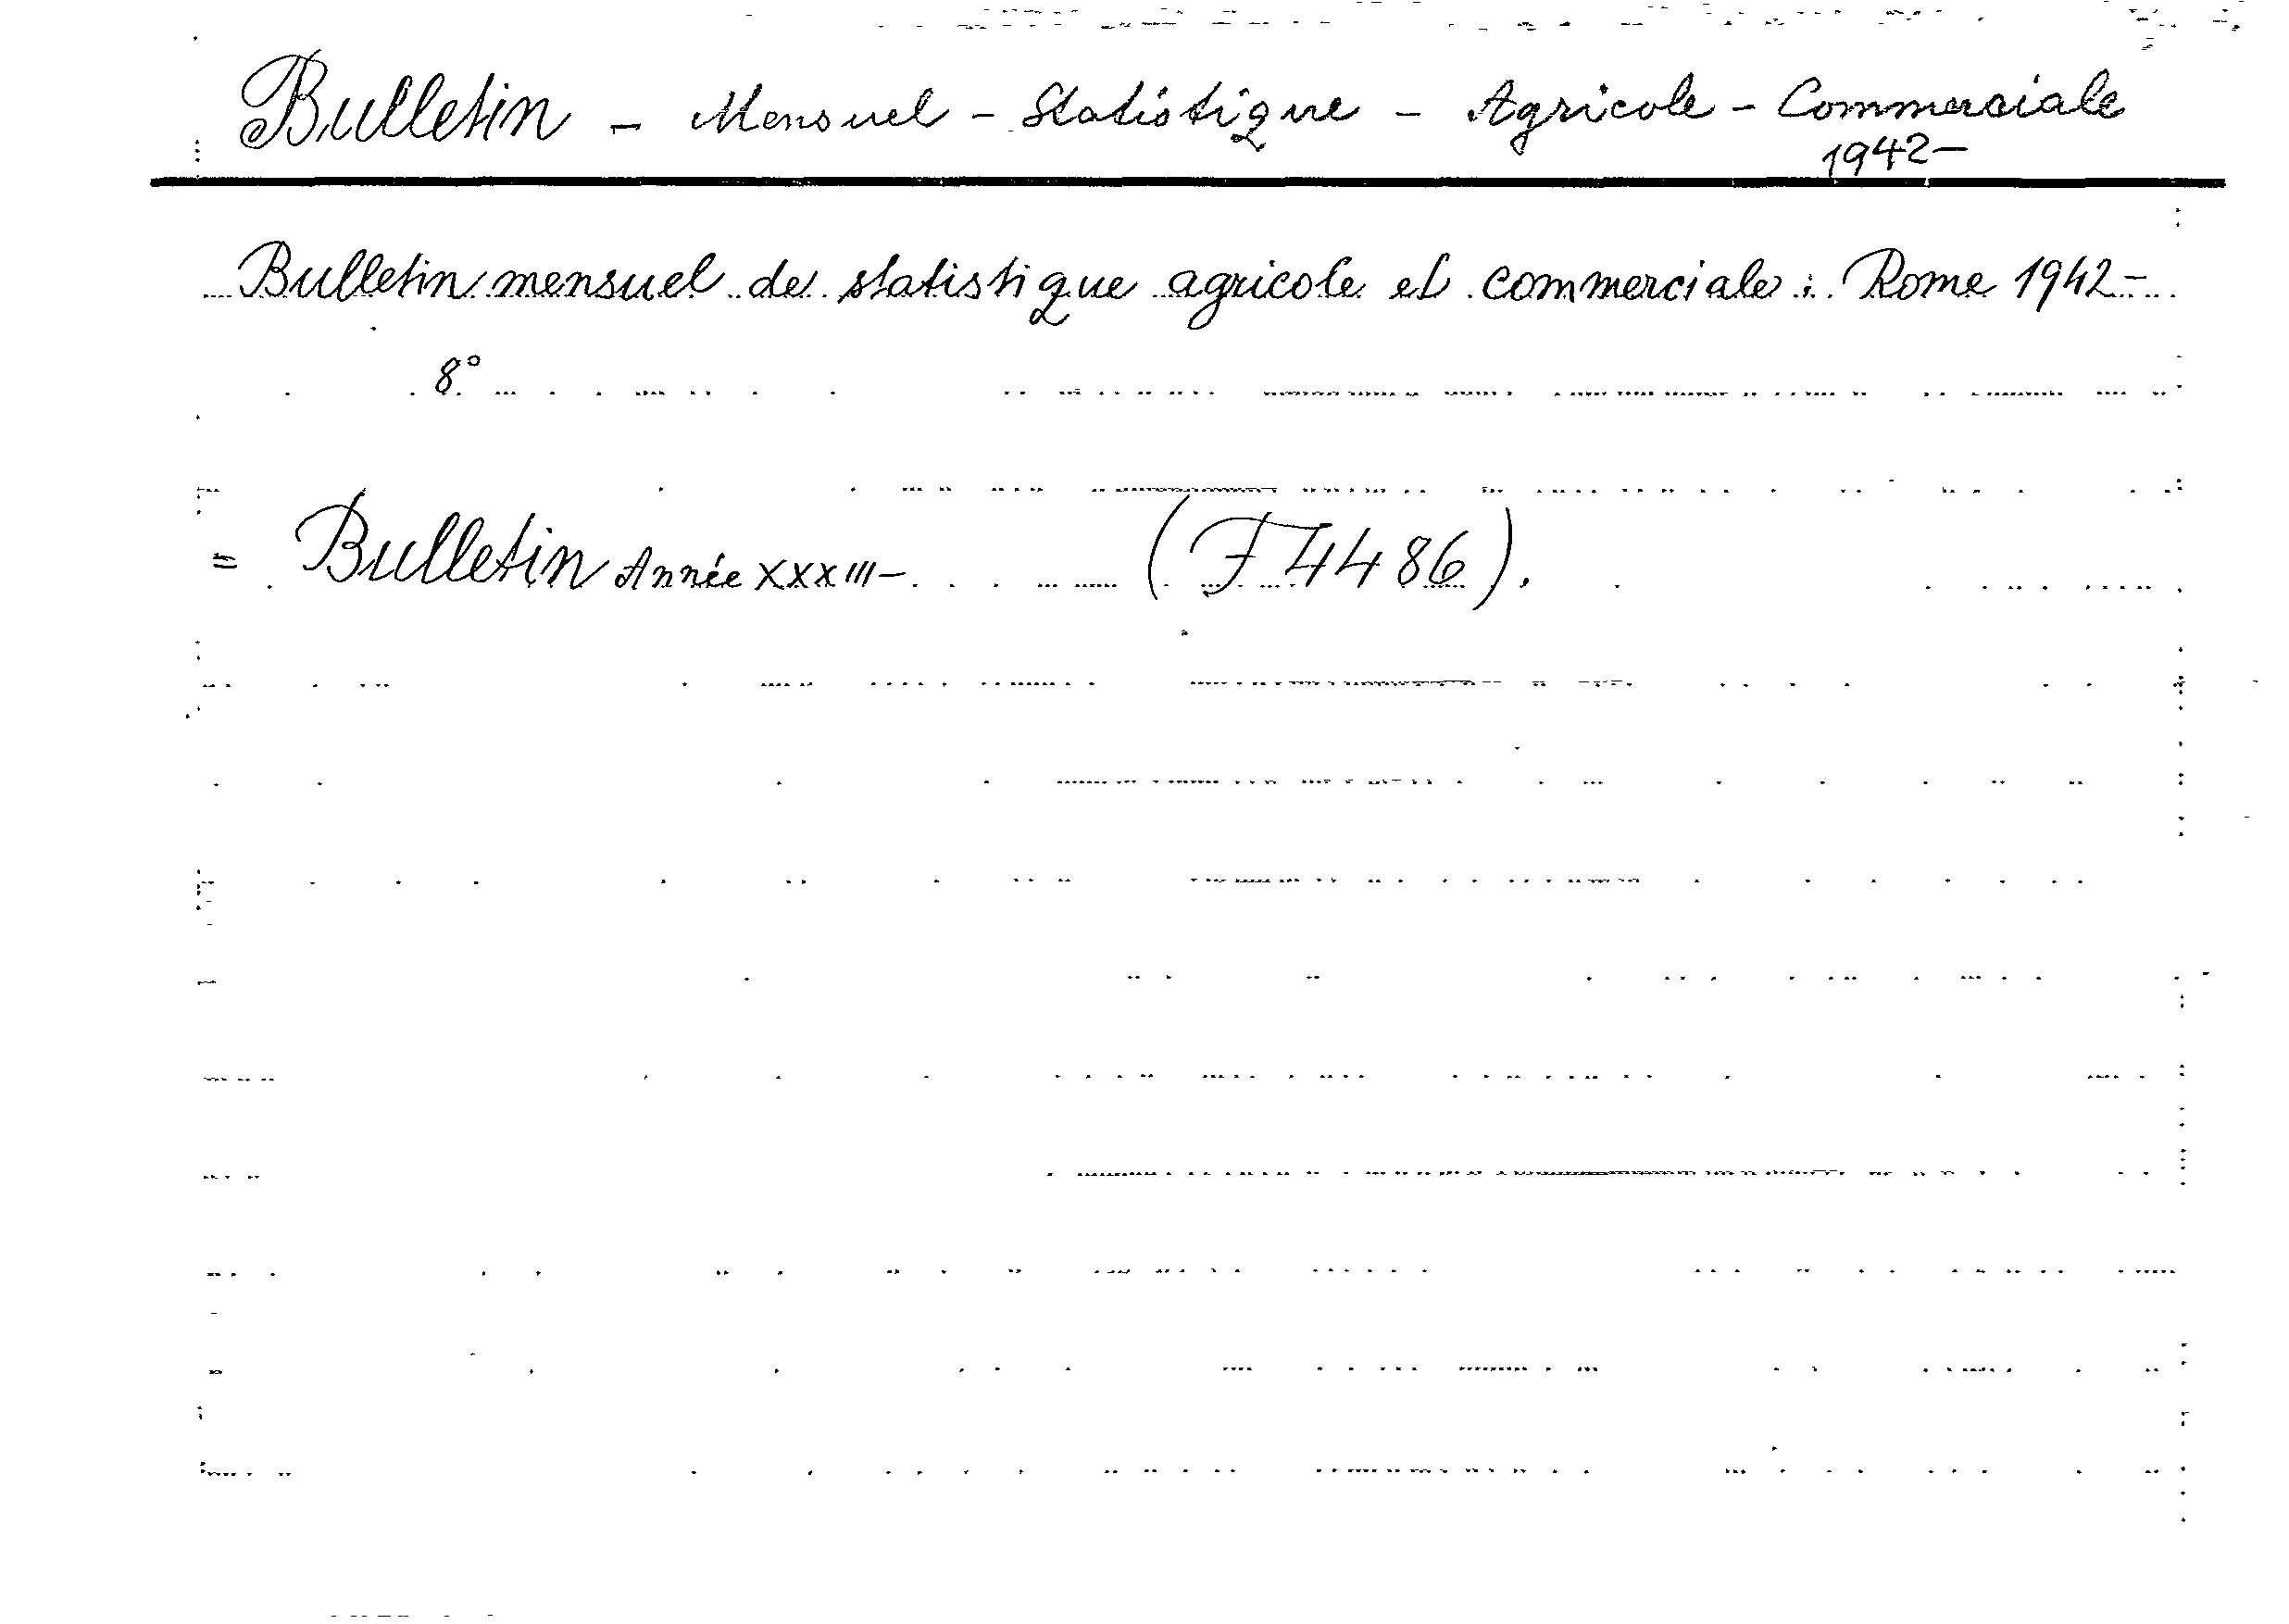 Bulletin - Mensuel - Statistique - Agricole - Commerciale
1942-
Bulletin mensuel de statistique agricole et commerciale : Rome 1942-
8°
= Bulletin Année XXXIII- (F 4486).